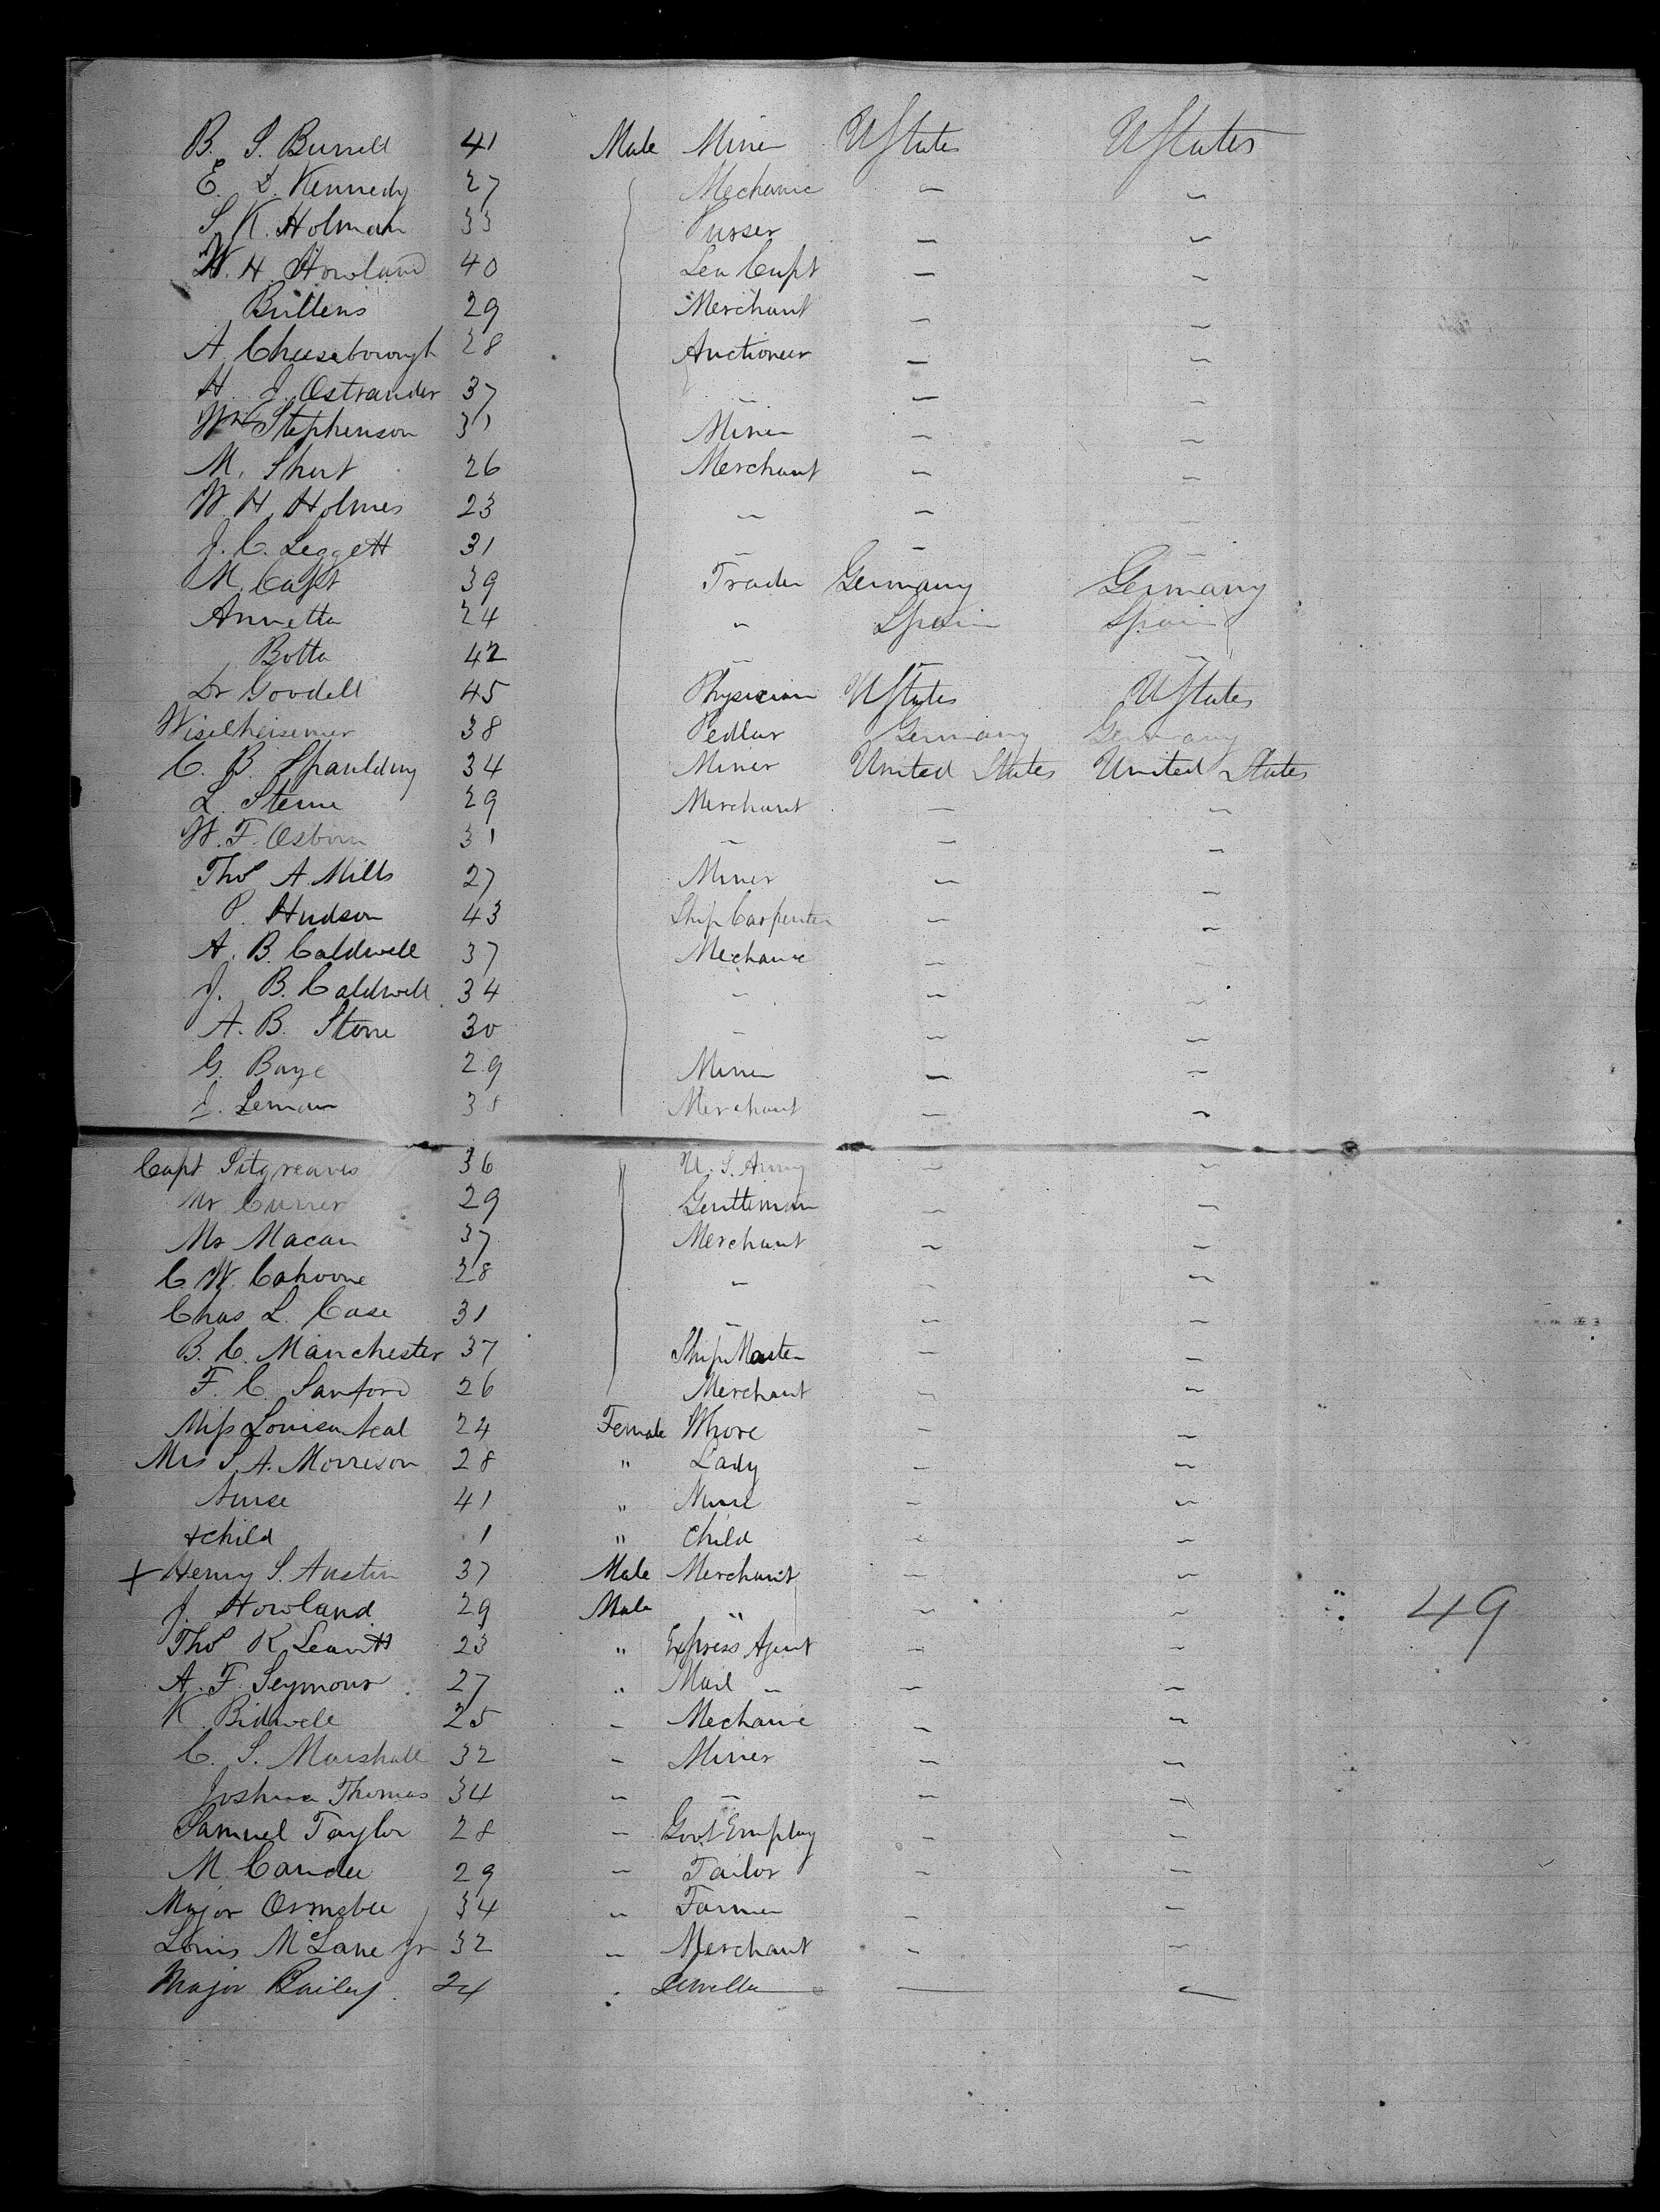 B. S. Burrell 41 Male Miner UStates UStates
E. D. Kennedy 27 Mechanic " "
S. K. Holman 33 Purser " "
W. H. Howland 40 Sea Capt " "
Bullens 29 Merchant " "
A Cheeseborough 28 Auctioneer " "
H. J. Ostrander 37 " " "
Wm Stephenson 31 Miner " "
M. Short 26 Merchant " "
W. H. Holmes 23 " "
J. C. Leggett 31 " " "
M. Capt 39 Trader Germany Germany
Annetta 24 " Spain Spain
Botta 42 " " "
Dr Goodell 45 Physician UStates UStates
Wiselheisemer 38 Pedlar Germany Germany
C. B. Spaulding 34 Miner United States United States
L. Sterne 29 Merchant " "
W. F. Osborn 31 " " "
Thos A. Mills 27 Miner " "
P. Hudson 43 Ship Carpenter " "
A. B. Caldwell 37 Mechanic " "
J. B. Caldwell 34 " " "
A. B. Stone 30 " " "
G. Baye 29 Miner " "
J. Leman 38 Merchant " "
Capt Sitgreaves 36 U. S. Army " "
Mr Currer 29 Gentleman " "
Mr Macan 37 Merchant " "
C. W. Cahoone 28 " " "
Chas L. Case 31 " " "
B. C. Manchester 37 Ship Master " "
F. C. Sanford 26 Merchant " "
Miss Louisa Neal 24 Female Whore " "
Mrs S. A. Morrison 28 " Lady " "
Nurse 41 " Nurse " "
+ child 1 " Child " "
+ Henry S. Austin 37 Male Merchant " "
J. Howland 29 Male " " " 49
Thos K Leavitt 23 " Express Agent " "
A. F. Seymour 27 " Mail " " "
K. Bidwell 25 " Mechanic " "
C. S. Marshall 32 " Miner " "
Joshua Thomas 34 " " " "
Samuel Taylor 28 " Govt Employ " "
M. Candee 29 " Tailor " "
Major Ormsbee 34 " Farmer " "
Louis McLane Jr 32 " Merchant " "
Major Bailey 24 " " "